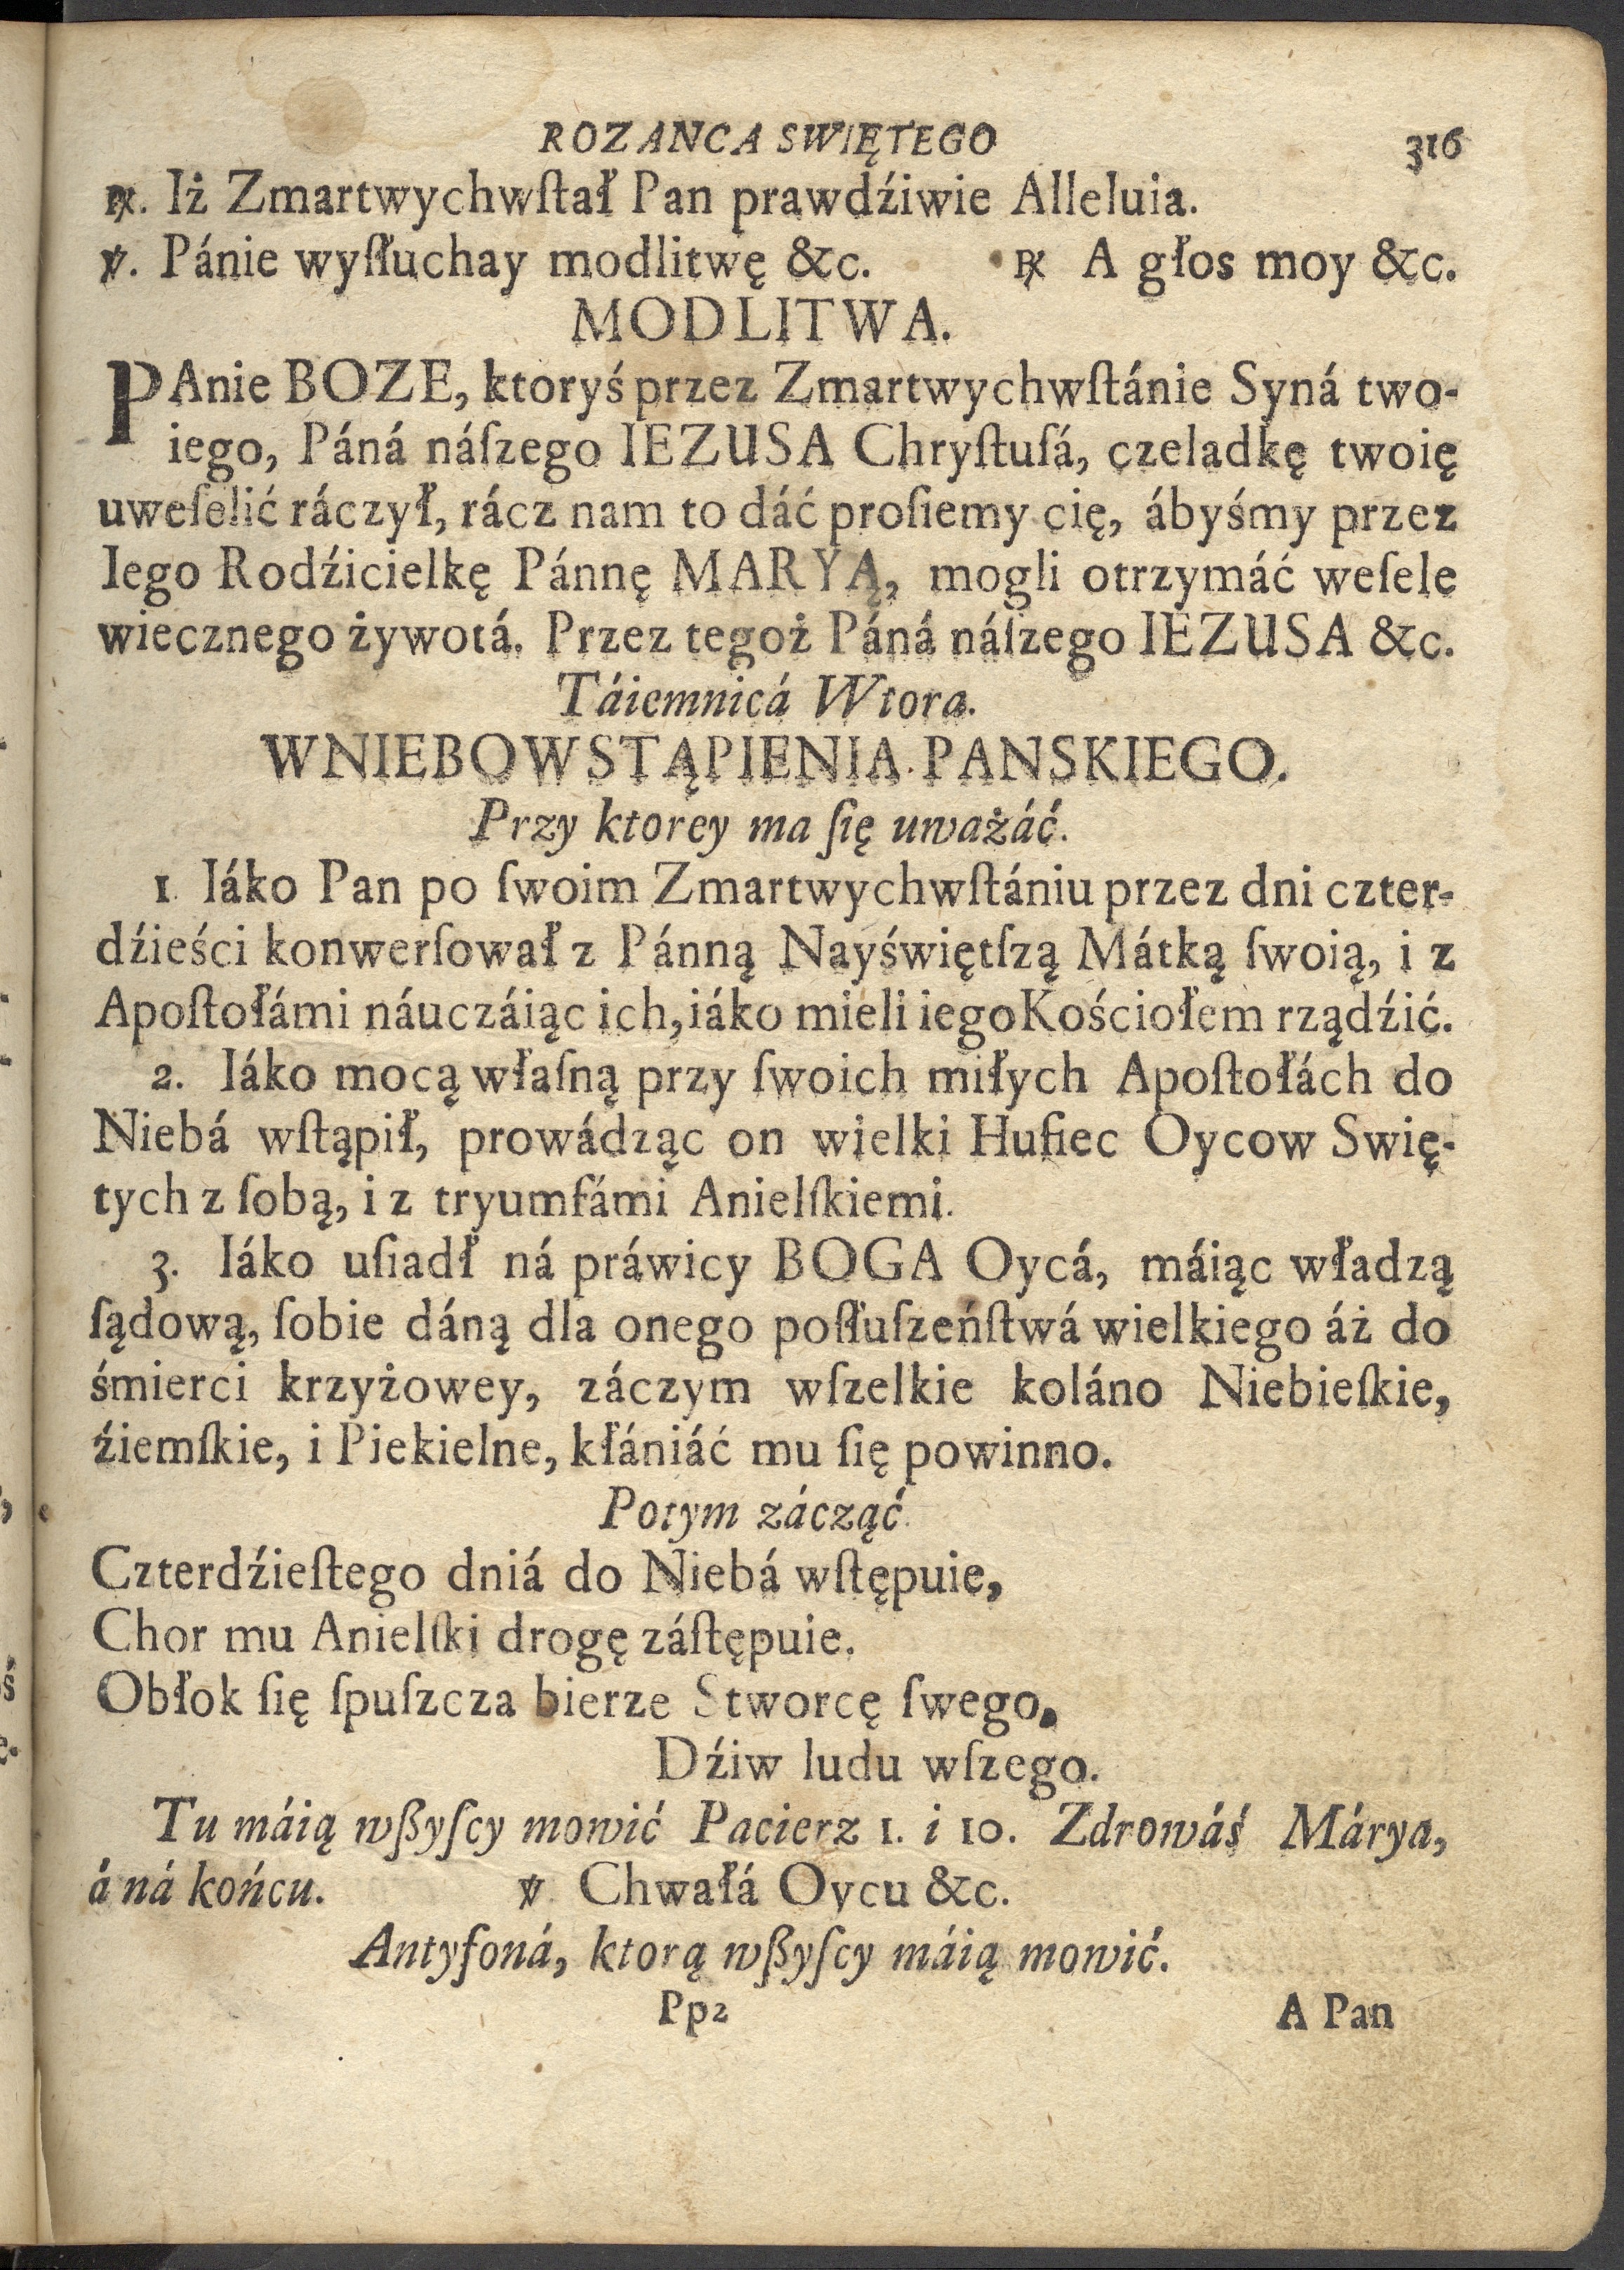 ROZANCA SWIĘTEGO 316
℟. Iż Zmartwychwſtał Pan prawdźiwie Alleluia.
℣. Pánie wyſłuchay modlitwę &c. ℟ A głos moy &c.
MODLITWA.
PAnie BOZE, ktoryś przez Zmartwychwſtánie Syná two-
iego, Páná náſzego IEZUSA Chryſtuſá, czeladkę twoię
uweſelić ráczył, rácz nam to dáć proſiemy cię, ábyśmy przez
Iego Rodźicielkę Pánnę MARYĄ, mogli otrzymáć weſele
wiecznego żywotá. Przez tegoż Páná náſzego IEZUSA &c.
Táiemnicá Wtora.
WNIEBOWSTĄPIENIA PANSKIEGO.
Przy ktorey ma ſię uważáć.
1. Iáko Pan po ſwoim Zmartwychwſtániu przez dni czter-
dźieści konwerſował z Pánną Nayświętſzą Mátką ſwoią, i z
Apoſtołámi náuczáiąc ich, iáko mieli iego Kościołem rządźić.
2. Iáko mocą właſną przy ſwoich miłych Apoſtołách do
Niebá wſtąpił, prowádząc on wielki Hufiec Oycow Swię-
tych z ſobą, i z tryumfámi Anielſkiemi.
3. Iáko uſiadł ná práwicy BOGA Oycá, máiąc władzą
ſądową, ſobie dáną dla onego poſłuſzeńſtwá wielkiego áż do
śmierci krzyżowey, záczym wſzelkie koláno Niebieſkie,
źiemſkie, i Piekielne, kłániáć mu ſię powinno.
Potym zácząć.
Czterdźieſtego dniá do Niebá wſtępuie,
Chor mu Anielſki drogę záſtępuie.
Obłok ſię ſpuſzcza bierze Stworcę ſwego,
Dźiw ludu wſzego.
Tu máią wßyſcy mowić Pacierz 1. i 10. Zdrowáś Márya,
á ná końcu. ℣ Chwałá Oycu &c.
Antyfoná, ktorą wßyſcy máią mowić.
Pp2 A Pan